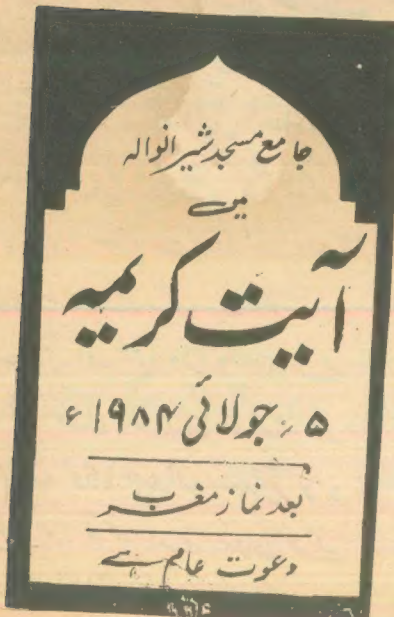 جامع مسجد شیرانوالہ
میں
آیت کریمہ
۵ر جولائی ۱۹۸۴ء
بعد نماز مغرب
دعوت عام ہے